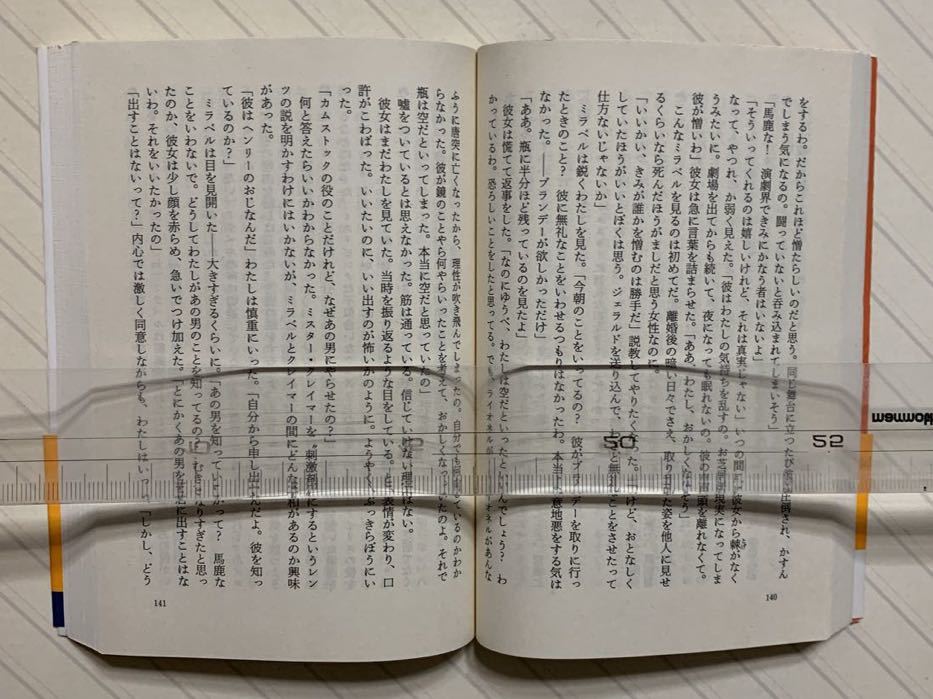 をするわ。だからこれほど憎たらしいのだと思う。同じ舞台に立つたび
圧倒され、かすん
でしまう気になるの。闘っていないと呑み込まれてしまいそう」
「馬鹿な! 演劇界できみにかなう者はいないよ」
「そういってくれるのは嬉しいけれど、それは真実じゃない」いつの間に
彼女から棘がなく
なって、やつれ、か弱く見えた。「彼はわたしの気持ちを乱すの。お芝居
現実になってしま
うみたいに。劇場を出てからも続いて、夜になっても眠れないの。彼の
頭を離れなくて。
彼が憎いわ」彼女は急に言葉を詰まらせた。「ああ、わたし、おかしくなりそう」
こんなミラベルを見るのは初めてだ。離婚後の暗い日々でさえ、取り乱した姿を他人に見せ
るくらいなら死んだほうがましだと思う女性なのに。
「いいかい、きみが誰かを憎むのは勝手だ」説教してやりたくなった。「けど、おとなしく
していたほうがいいとぼくは思う。ジェラルドを送り込んで、わざと無礼なことをさせたって
仕方ないじゃないか」
ミラベルは鋭くわたしを見た。「今朝のことをいってるの? 彼がブランデーを取りに行っ
たときのこと? 彼に無礼なことをいわせるつもりはなかったわ。本当よ、意地悪をする気は
なかった。――ブランデーが欲しかっただけ」
「ああ。瓶に半分ほど残っているのを見たよ」
彼女は慌てて返事をした。「なのにゆうべ、わたしは空だといったといいたいんでしょう? わ
かっているわ。恐ろしいことをしたと思ってる。でも、ライオネルが――ライオネルがあんな
140
ふうに唐突に亡くなったから、理性が吹き飛んでしまったの。自分でも何を
ているのかわか
らなかった。彼が鏡のことや何やらいったことを考えて、おかしくなっていたのよ。それで
瓶は空だといってしまった。本当に空だと思っていたの」
嘘をついているとは思えなかった。筋は通っている。信じていけない理由はない。
彼女はまだわたしを見ていた。当時を振り返るような目をしている。と、表情が変わり、口
許がこわばった。いいたいのに、いい出すのが怖いかのように。ようやく、ぶっきらぼうにい
った。
「カムストックの役のことだけれど、なぜあの男にやらせたの?」
何と答えたらいいかわからなかった。ミスター・クレイマーを〝刺激剤〟にするというレン
ツの説を明かすわけにはいかないが、ミラベルとクレイマーの間にどんな
があるのか興味
があった。
「彼はヘンリーのおじなんだ」わたしは慎重にいった。「自分から申し出たんだよ。彼を知っ
ているのか?」
ミラベルは目を見開いた――大きすぎるくらいに。「あの男を知っていますかって? 馬鹿な
ことをいわないで。どうしてわたしがあの男のことを知ってるの?」むきになりすぎたと思っ
たのか、彼女は少し顔を赤らめ、急いでつけ加えた。「とにかくあの男を舞台に出すことはな
いわ。それをいいたかったの」
「出すことはないって?」内心では激しく同意しながらも、わたしはいった。「しかし、どう
141
50
52
mammoth